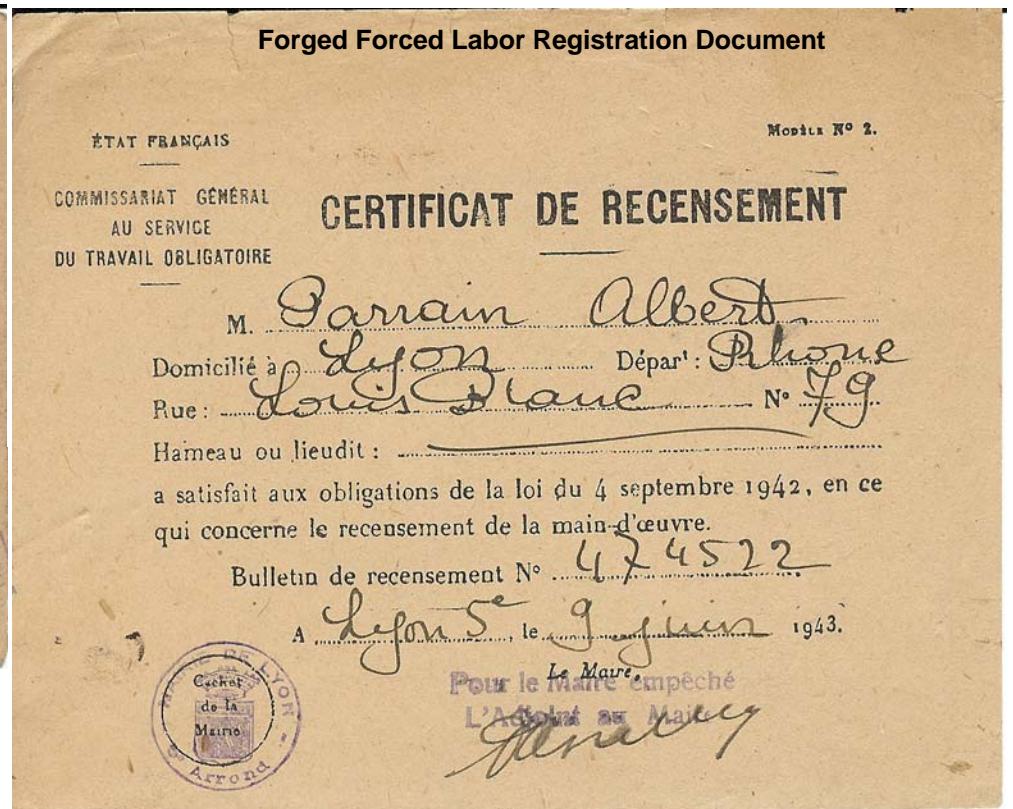 Forged Forced Labor Registration Document
ÉTAT FRANÇAIS
MODÈLE Nº 2.
COMMISSARIAT GÉNÉRAL
AU SERVICE
DU TRAVAIL OBLIGATOIRE
CERTIFICAT DE RECENSEMENT
M. Parrain Albert
Domicilié à Lyon Départ : Rhone
Rue : Louis Blanc Nº 79
Hameau ou lieudit :
a satisfait aux obligations de la loi du 4 septembre 1942, en ce
qui concerne le recensement de la main-d'œuvre.
Bulletin de recensement Nº 474522
A Lyon 5e, le 9 juin 1943.
Le Maire,
Pour le Maire empêché
L'Adjoint au Maire
MAIRIE DE LYON
Cachet
de la
Mairie
5e Arrond